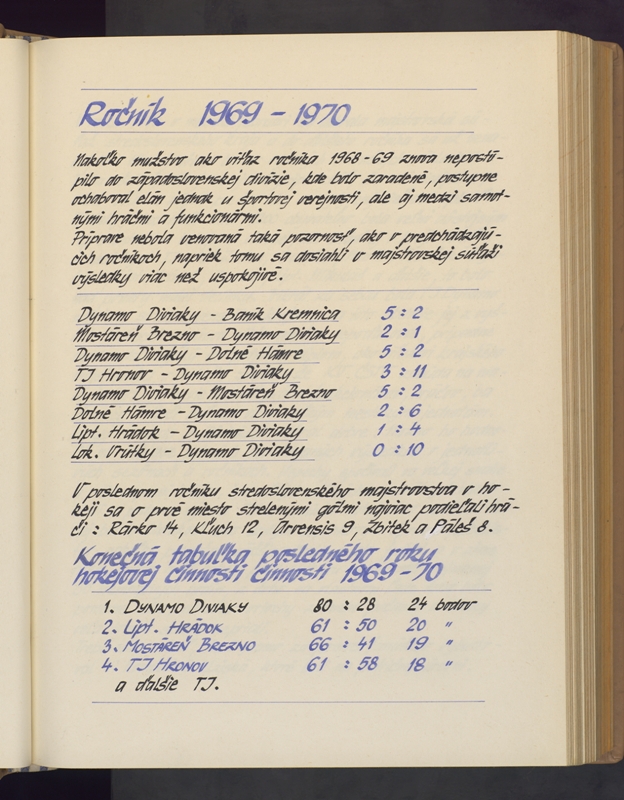 Ročník 1969 - 1970
Nakoľko mužstvo ako víťaz ročníka 1968-69 znova nepostú-
pilo do západoslovenskej divízie, kde bolo zaradené, postupne
ochaboval elán jednak u športovej verejnosti, ale aj medzi samot-
nými hráčmi a funkcionármi.
Príprave nebola venovaná taká pozornosť, ako v predchádzajú-
cich ročníkoch, napriek tomu sa dosiahli v majstrovskej súťaži
výsledky viac než uspokojivé.
Dynamo Diviaky - Baník Kremnica 5 : 2
Mostáreň Brezno - Dynamo Diviaky 2 : 1
Dynamo Diviaky - Dolné Hámre 5 : 2
TJ Hronov - Dynamo Diviaky 3 : 11
Dynamo Diviaky - Mostáreň Brezno 5 : 2
Dolné Hámre - Dynamo Diviaky 2 : 6
Lipt. Hrádok - Dynamo Diviaky 1 : 4
Lok. Vrútky - Dynamo Diviaky 0 : 10
V poslednom ročníku stredoslovenského majstrovstva v ho-
keji sa o prvé miesto strelenými gólmi najviac podieľali hrá-
či : Rárko 14, Kľuch 12, Úrvensis 9, Zbitek a Páleš 8.
Konečná tabuľka posledného roku
hokejovej činnosti činnosti 1969-70
1. Dynamo Diviaky 80 : 28 24 bodov
2. Lipt. Hrádok 61 : 50 20 "
3. Mostáreň Brezno 66 : 41 19 "
4. TJ Hronov 61 : 58 18 "
a ďalšie TJ.